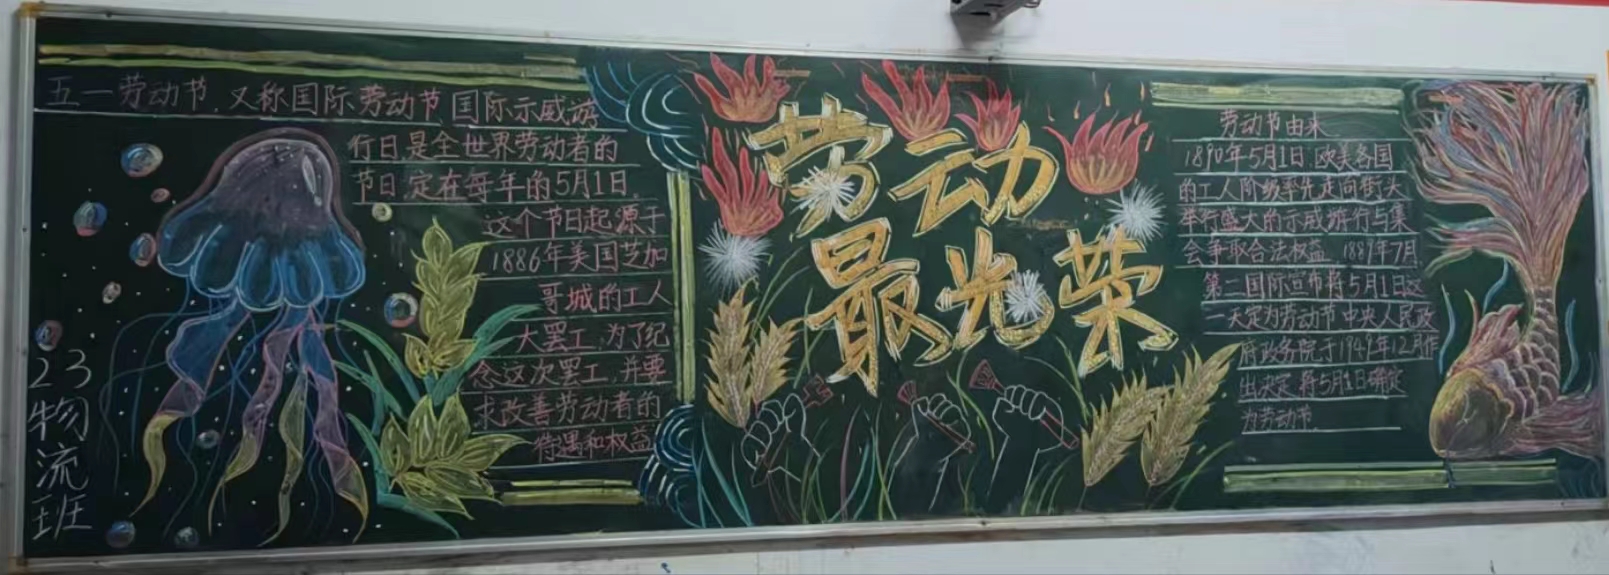 五一劳动节,又称国际劳动节,国际示威游
行日,是全世界劳动者的
节日,定在每年的5月1日
这个节日起源于
1886年美国芝加
哥城的工人
大罢工,为了纪
念这次罢工,并要
求改善劳动者的
待遇和权益
23
物
流
班
劳动
最光荣
劳动节由来
1890年5月1日,欧美各国
的工人阶级率先走向街头
举行盛大的示威游行与集
会争取合法权益 1889年7月,
第二国际宣布将5月1日这
一天定为劳动节 中央人民政
府政务院于1949年12月作
出决定,将5月1日确定
为劳动节